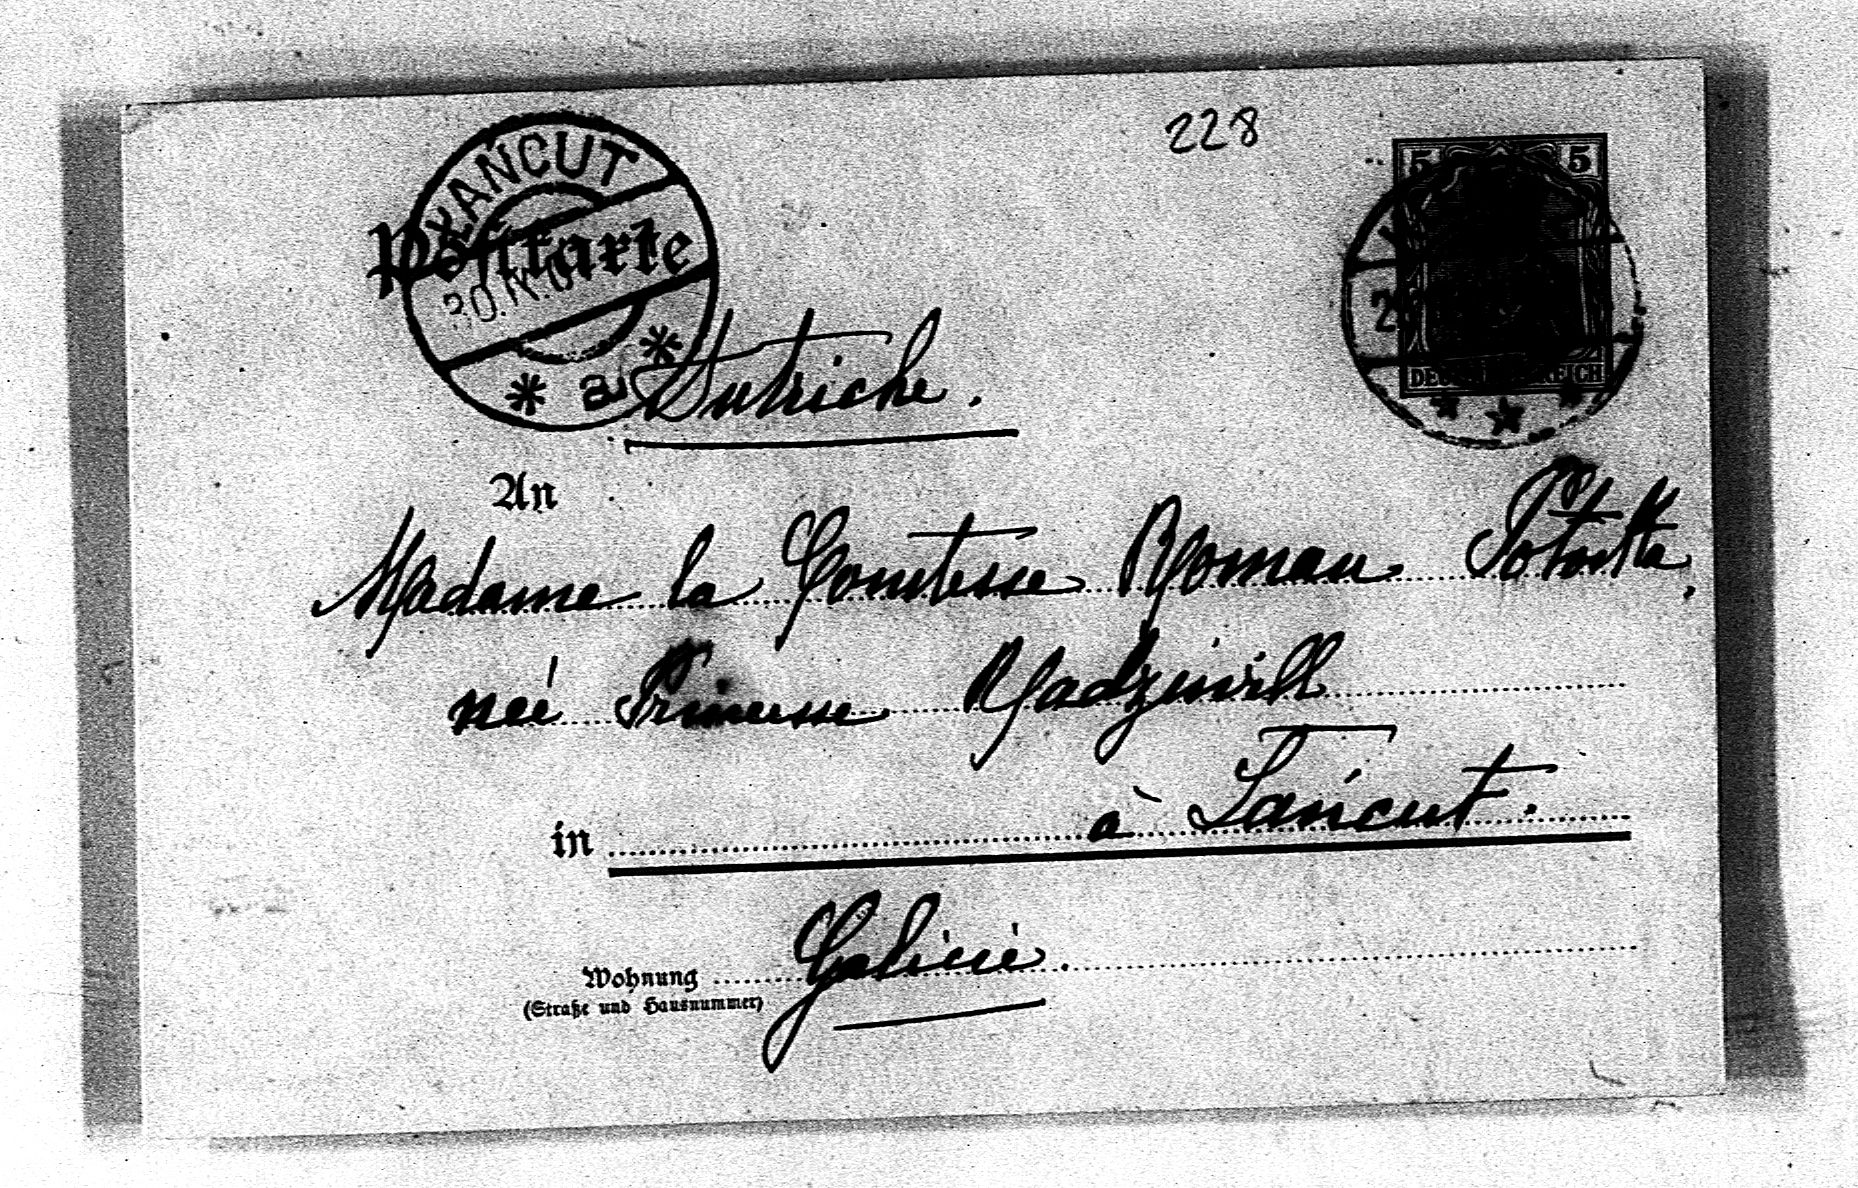 228
ŁAŃCUT
Postkarte
5 5
a
Autriche.
DEUTSCHES REICH
An
Madame la Comtesse Roman Potocka,
née Princesse Radziwill
in à Łańcut.
Wohnung Galicie.
(Straße und Hausnummer)